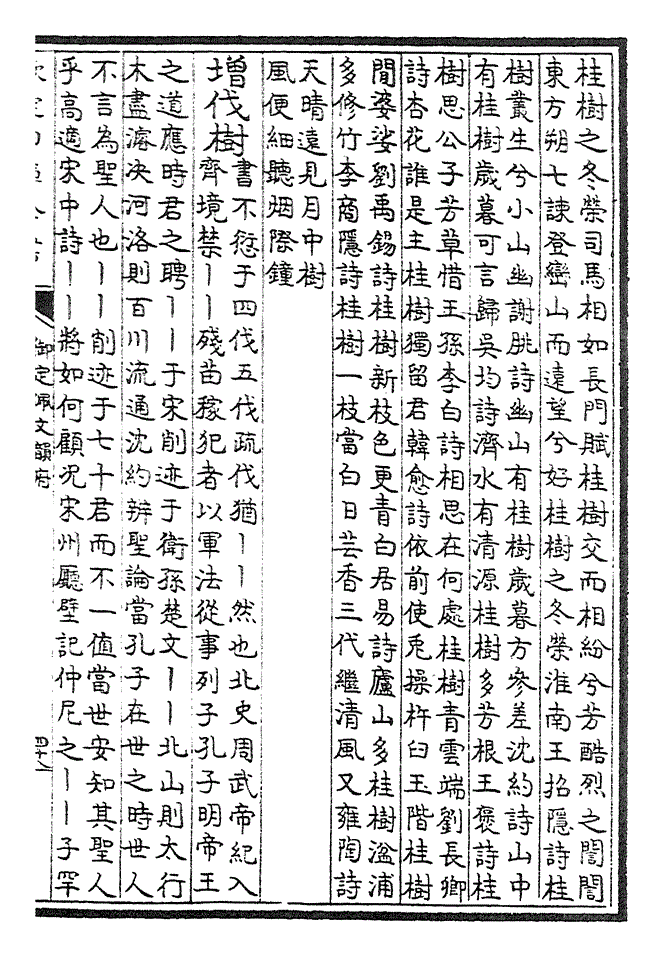 桂樹之冬榮司馬相如長門賦桂樹交而相紛兮芳酷烈之誾誾
東方朔七諫登巒山而遠望兮好桂樹之冬榮淮南王招隱詩桂
樹叢生兮小山幽謝朓詩幽山有桂樹歲暮方參差沈約詩山中
有桂樹歲暮可言歸吳均詩濟水有清源桂樹多芳根王褒詩桂
樹思公子芳草惜王孫李白詩相思在何處桂樹青雲端劉長卿
詩杏花誰是主桂樹獨留君韓愈詩依前使兎操杵臼玉階桂樹
閒婆娑劉禹錫詩桂樹新枝色更青白居易詩廬山多桂樹湓浦
多修竹李商隱詩桂樹一枝當白日芸香三代繼清風又雍陶詩
天晴遠見月中樹
風便細聽烟際鐘
增伐樹書不愆于四伐五代疏伐猶丨丨然也北史周武帝紀入
齊境禁丨丨殘苗稼犯者以軍法從事列子孔子明帝王
之道應時君之聘丨丨于宋削迹于衛孫楚文丨丨北山則太行
木盡濬決河洛則百川流通沈約辨聖論當孔子在世之時世人
不言為聖人也丨丨削迹于七十君而不一值當世安知其聖人
乎高適宋中詩丨丨將如何顧况宋州廳壁記仲尼之丨丨子罕
御定佩文韻府
四十八